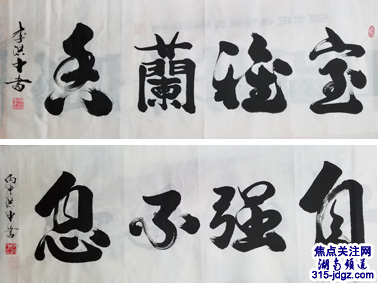 室雅蘭香
李洪中書
自强不息
丙申洪中書
焦点关注网
湖南频道
315-jdgz.com